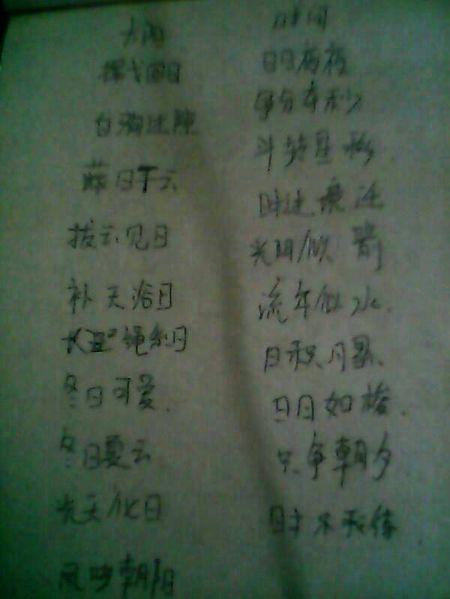 太阳
挥戈回日
白驹过隙
蔽日干云
拔云见日
补天浴日
长绳系日
冬日可爱.
冬日夏云
光天化日
凤鸣朝阳
时间
争分夺秒
斗转星移.
时过境迁
光阴似箭
流年似水.
日积月累、
日月如梭.
只争朝夕
时不我待